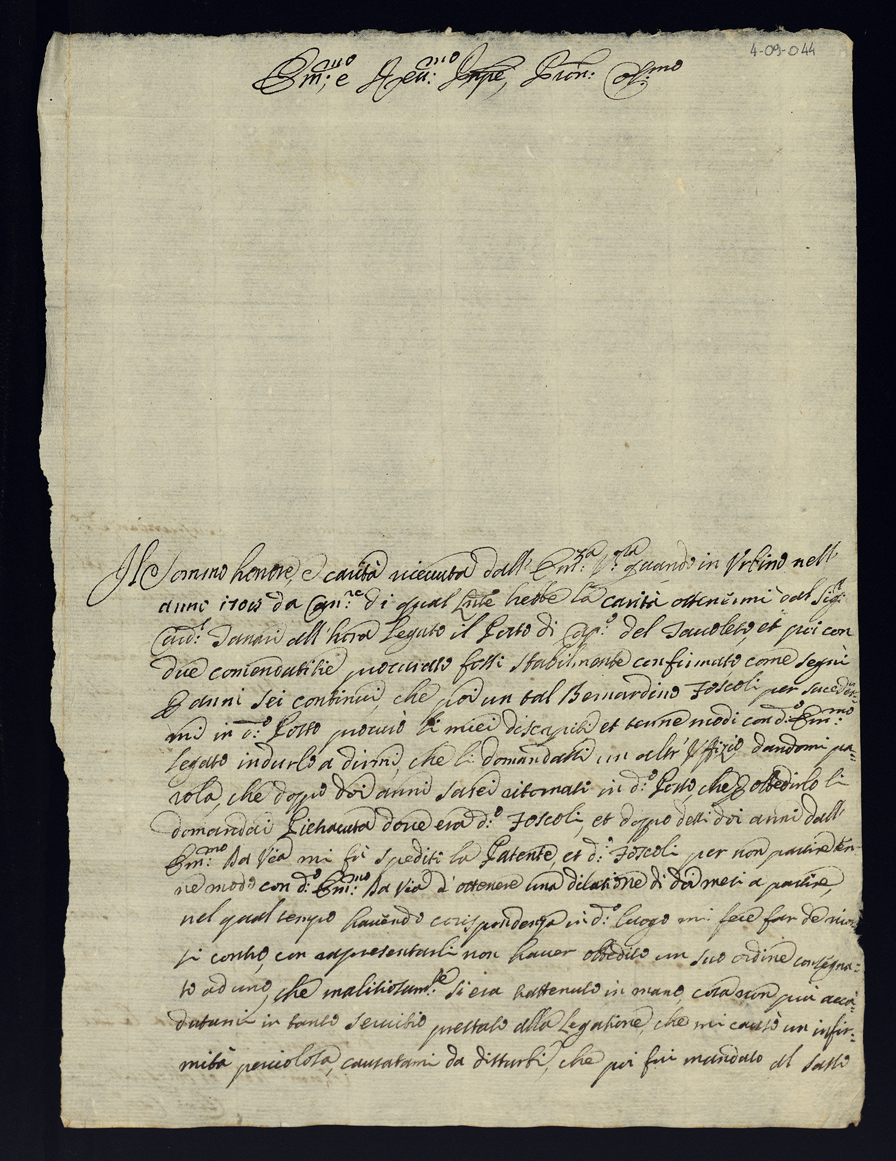 4-09-044
Em:mo e Reu:mo Snpe, Pron: Col:mo
Il Sommo honore, e carità riceuuta dall' Em:za V:ra quando in Vrbino nell'
anno 1705 da Can:re di qual hebbe la carità ottenermi dal Sig:r
Card:l Tanari all' hora Legato il Posto di Cap:o del Tauoleto et poi con
due comendatitie procurato fossi stabilmente confirmato come segui
anni sei continui, che poi un tal Bernardino Foscoli per succeder-
mi in d:o Posto procurò li miei discapiti et tenne modi con d:o Em:mo
Legato indurlo a dirmi, che li domandassi un altr' Vffizio, dandomi pa=
rola, che doppo doi anni sarei ritornati in d:o Posto, che obbedirlo li
domandai Pietracuta doue era d:o Foscoli, et doppo detti doi anni dall'
Em:mo Da Via mi fù spediti la Patente, et d:o Foscoli per non partire ten-
ne modo con d:o Em:mo Da Via d'ottenere una dilatione di doi mesi a partire,
nel qual tempo hauendo corispondenza in d:o luogo mi fece far de ricor
si contro, con rapresentarli non hauer obbedito un suo ordine consegna=
to ad uno, che malitiosam:te si era trattenuto in mano, cosa non più acca=
dutami in tanto seruitio prestato alla Legatione, che mi causò un infir=
mità pericolosa, causatami da disturbi, che poi fui mandato al Sasso